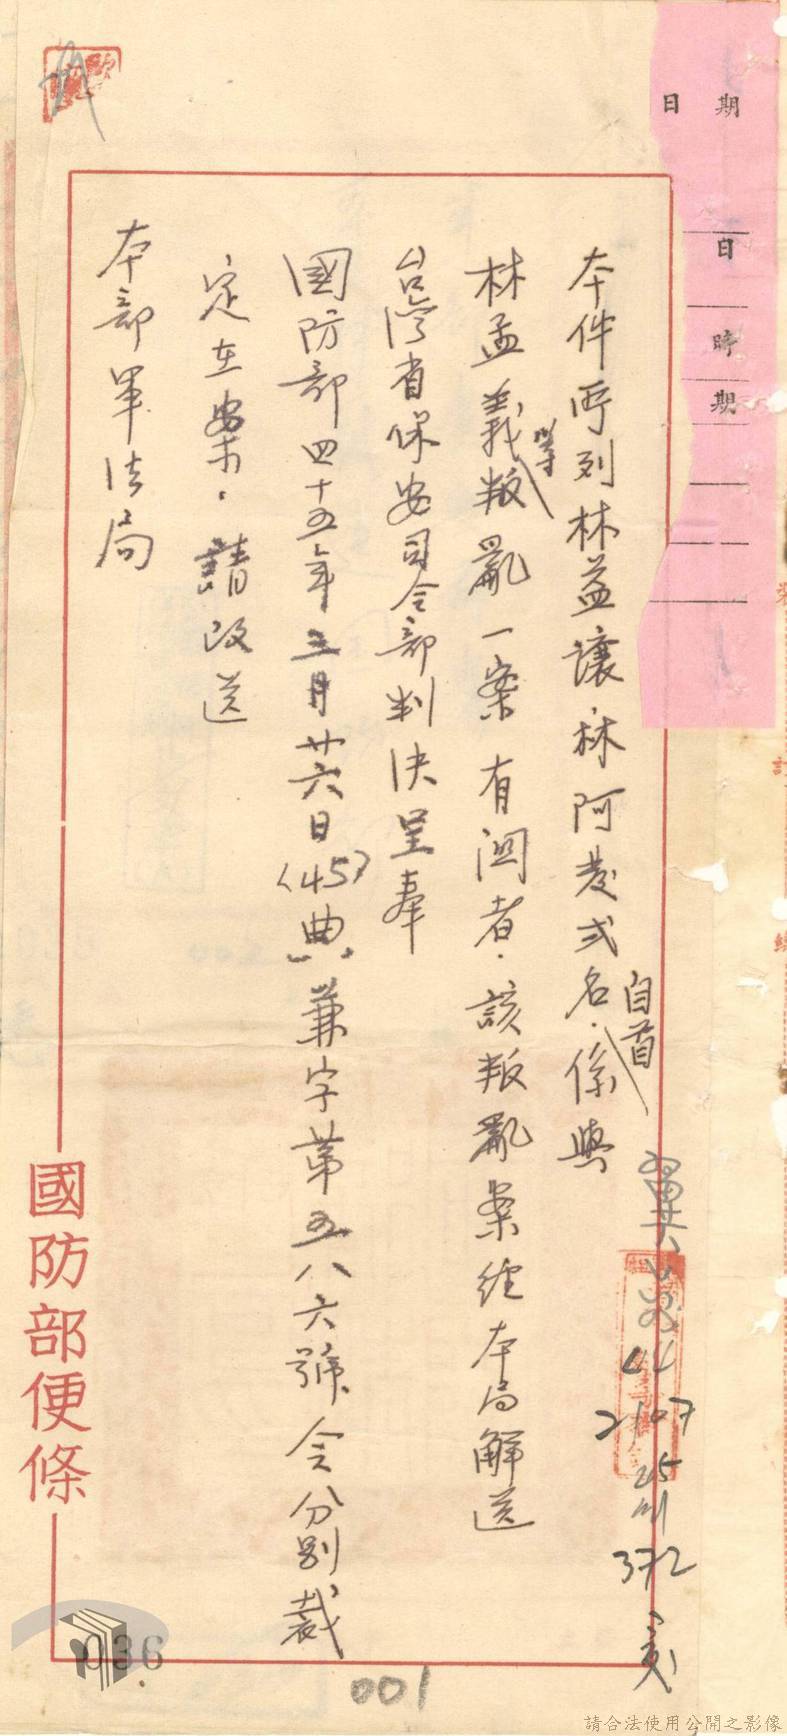 日期
日時期
本件所列林益讓．林阿發弍名．係與
自首
林孟義叛亂一案有關者．該叛亂案經本局解送
等
台灣省保安司令部判決呈奉
國防部四十五年三月廿六日(45)典兼字第五八六號令分別裁
定在案．請改送
本部軍法局
國防部便條
44
2107
45
372
036
001
請合法使用公開之影像